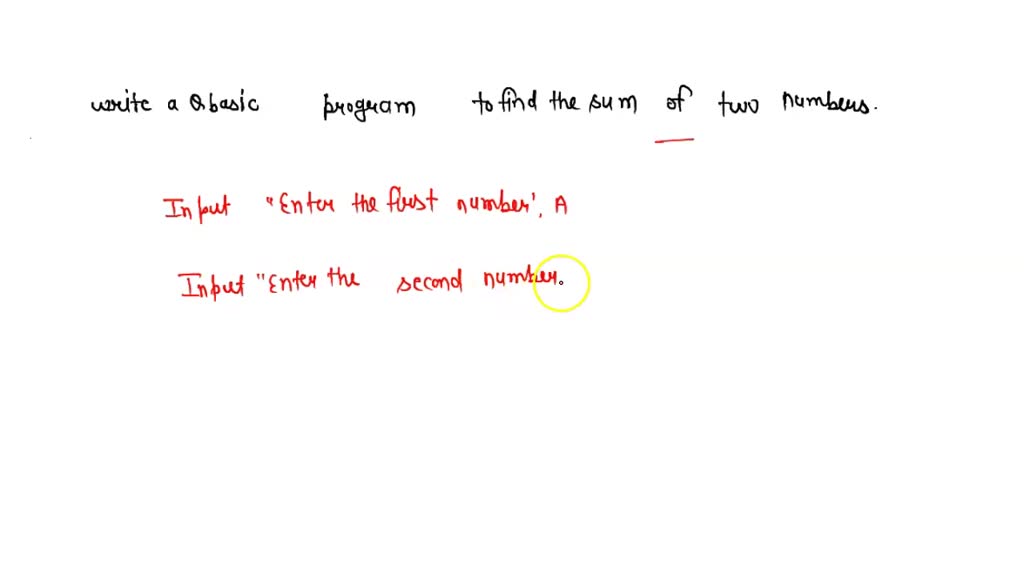 write a Qbasic program to find the sum of two numbers.
Input "Enter the first number", A
Input "Enter the second number.